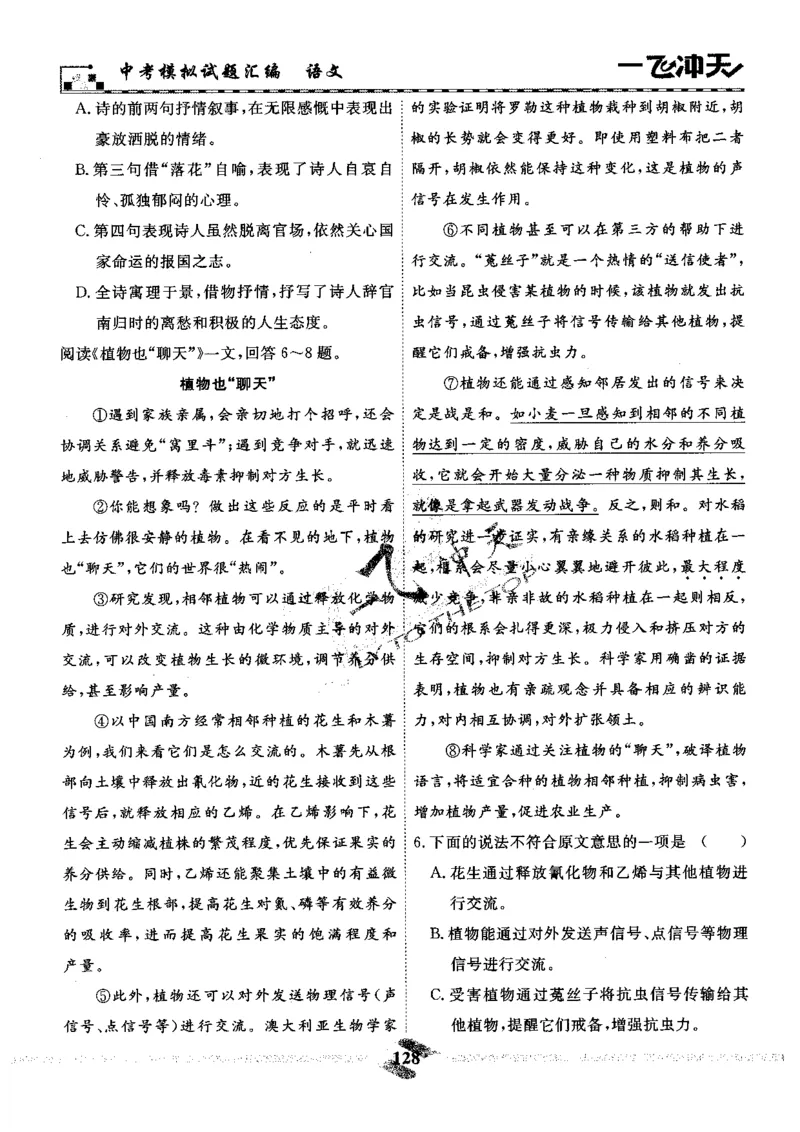 中考模拟试题汇编 语文
一飞冲天
A.诗的前两句抒情叙事,在无限感慨中表现出
豪放洒脱的情绪。
B.第三句借“落花”自喻,表现了诗人自哀自
怜、孤独郁闷的心理。
C.第四句表现诗人虽然脱离官场,依然关心国
家命运的报国之志。
D.全诗寓理于景,借物抒情,抒写了诗人辞官
南归时的离愁和积极的人生态度。
阅读《植物也“聊天”》一文,回答6～8题。
植物也“聊天”
①遇到家族亲属,会亲切地打个招呼,还会
协调关系避免“窝里斗”;遇到竞争对手,就迅速
地威胁警告,并释放毒素抑制对方生长。
②你能想象吗?做出这些反应的是平时看
上去仿佛很安静的植物。在看不见的地下,植物
也“聊天”,它们的世界很“热闹”。
③研究发现,相邻植物可以通过释放化学物
质,进行对外交流。这种由化学物质主导的对外
交流,可以改变植物生长的微环境,调节养分供
给,甚至影响产量。
④以中国南方经常相邻种植的花生和木薯
为例,我们来看它们是怎么交流的。木薯先从根
部向土壤中释放出氰化物,近的花生接收到这些
信号后,就释放相应的乙烯。在乙烯影响下,花
生会主动缩减植株的繁茂程度,优先保证果实的
养分供给。同时,乙烯还能聚集土壤中的有益微
生物到花生根部,提高花生对氮、磷等有效养分
的吸收率,进而提高花生果实的饱满程度和
产量。
⑤此外,植物还可以对外发送物理信号(声
信号、点信号等)进行交流。澳大利亚生物学家
的实验证明将罗勒这种植物栽种到胡椒附近,胡
椒的长势就会变得更好。即使用塑料布把二者
隔开,胡椒依然能保持这种变化,这是植物的声
信号在发生作用。
⑥不同植物甚至可以在第三方的帮助下进
行交流。“菟丝子”就是一个热情的“送信使者”,
比如当昆虫侵害某植物的时候,该植物就发出抗
虫信号,通过菟丝子将信号传输给其他植物,提
醒它们戒备,增强抗虫力。
⑦植物还能通过感知邻居发出的信号来决
定是战是和。如小麦一旦感知到相邻的不同植
物达到一定的密度,威胁自己的水分和养分吸
收,它就会开始大量分泌一种物质抑制其生长,
就像是拿起武器发动战争。反之,则和。对水稻
的研究进一步证实,有亲缘关系的水稻种植在一
起,根系会尽量小心翼翼地避开彼此,最大程度
减少竞争,非亲非故的水稻种植在一起则相反,
它们的根系会扎得更深,极力侵入和挤压对方的
生存空间,抑制对方生长。科学家用确凿的证据
表明,植物也有亲疏观念并具备相应的辨识能
力,对内相互协调,对外扩张领土。
⑧科学家通过关注植物的“聊天”,破译植物
语言,将适宜合种的植物相邻种植,抑制病虫害,
增加植物产量,促进农业生产。
6.下面的说法不符合原文意思的一项是 ( )
A.花生通过释放氰化物和乙烯与其他植物进
行交流。
B.植物能通过对外发送声信号、点信号等物理
信号进行交流。
C.受害植物通过菟丝子将抗虫信号传输给其
他植物,提醒它们戒备,增强抗虫力。
128